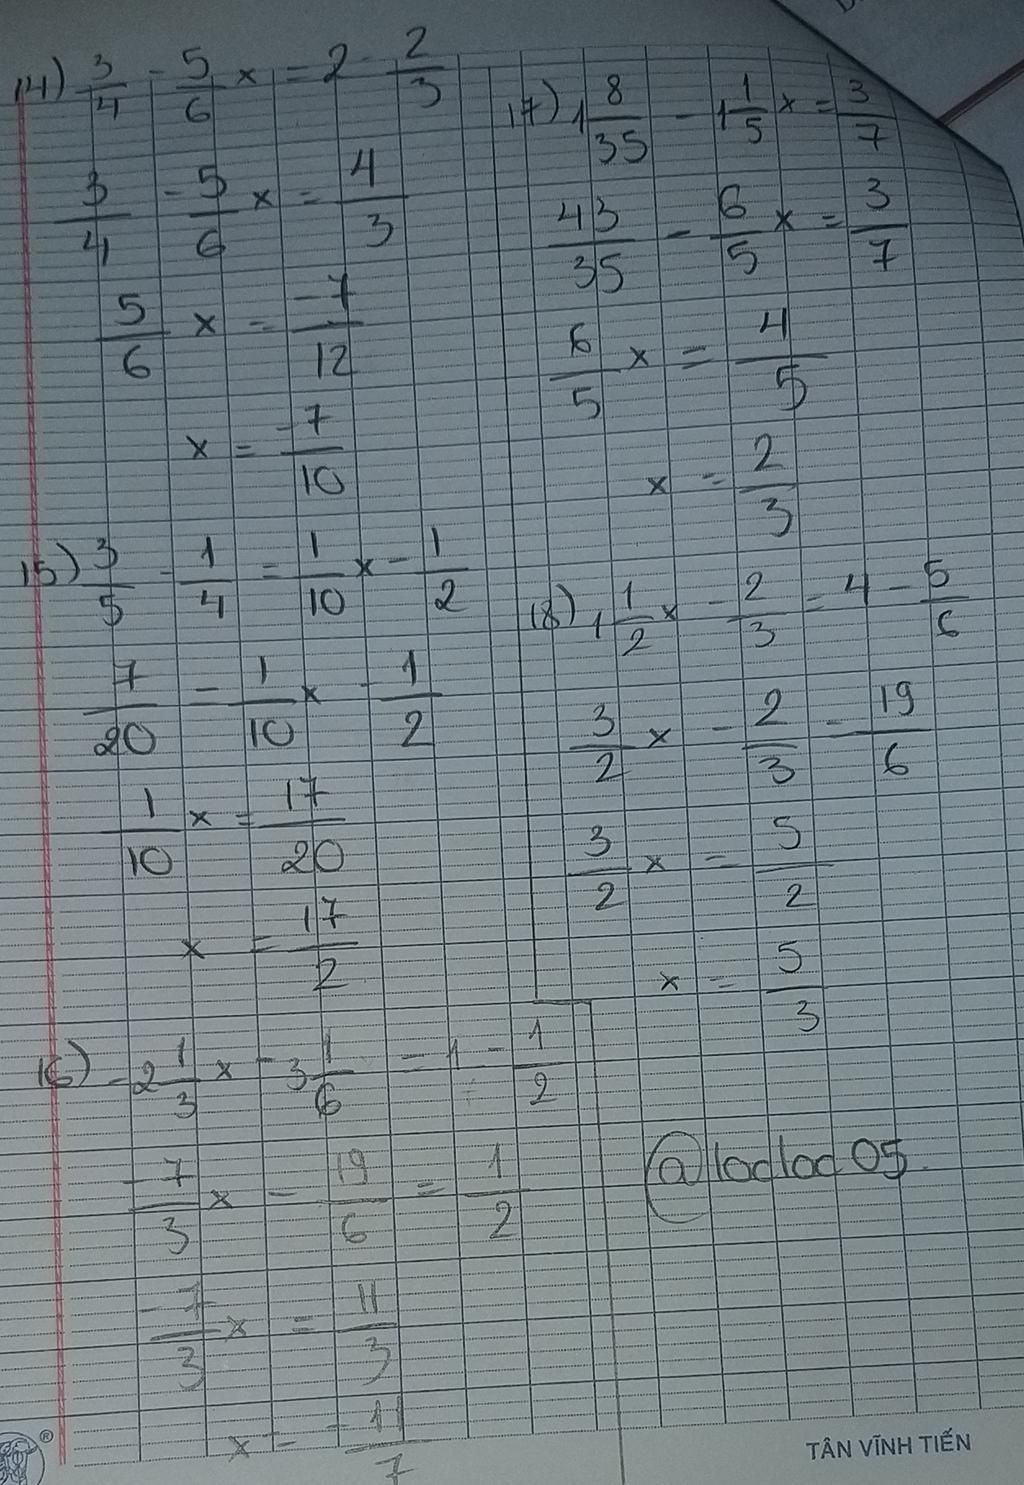 14) 3/4 - 5/6 x = 2 - 2/3
3/4 - 5/6 x = 4/3
5/6 x = -7/12
x = -7/10
15) 3/5 - 1/4 = 1/10 x - 1/2
7/20 = 1/10 x - 1/2
1/10 x = 17/20
x = 17/2
16) -2 1/3 x - 3 1/6 = 1 - 1/2
-7/3 x - 19/6 = 1/2
-7/3 x = 11/3
x = -11/7
17) 1 8/35 - 1 1/5 x = 3/7
43/35 - 6/5 x = 3/7
6/5 x = 4/5
x = 2/3
18) 1 1/2 x - 2/3 = 4 - 5/6
3/2 x - 2/3 = 19/6
3/2 x = 5/2
x = 5/3
@locloc05
TÂN VĨNH TIẾN